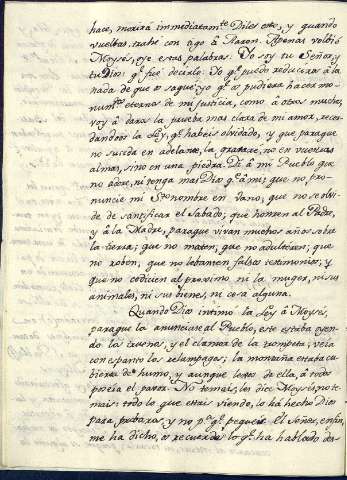 hace, morirá immediatamte. Diles esto, y quando
vuelvas, trahe con tigo à Aaron. Apenas volbió
Moyses, oye estas palabras: Yo soy tu Señor, y
tu Dios: qe. fué decirle: Yo qe. puedo reduciros à la
nada de que os saque: yo qe. os pudiera hacer mo-
numtos. eternos de mi justicia, como à otros muchos,
voy à daros la prueba mas clara de mi amor, recor-
dandoos la Ley, qe. habeis olvidado, y que paraque
no suceda en adelante, la gravare, no en vuestras
almas, sino en una piedra. Dà à mi Pueblo que
no adore, ni tenga mas Dios qe. à mi; que no pro-
nuncie mi Sto. nombre en vano; que no se olvi-
de de santificar el Sabado; que honrren al Padre,
y à la Madre, paraque vivan muchos años sobre
la tierra; que no maten; que no adulteren; que
no roben; que no lebanten falsos testimonios; y
que no codicien al proximo ni la muger, ni sus
animales, ni sus bienes, ni cosa alguna.
Quando Dios intimo la Ley à Moyses,
paraque la anunciase al Pueblo, este estaba oyen-
do los truenos, y el clamor de la trompeta; veia
con espanto los relampagos; la montaña estaba cu-
bierta de humo, y aunque lexos de ella, à todos
poseía el pavor. No temais, les dice Moyses, no te-
mais: todo lo que estais viendo, lo ha hecho Dios
para probaros; y no pa. qe. pequeis. El Señor, enfin,
me ha dicho, os recuerde lo qe. ha hablado des-